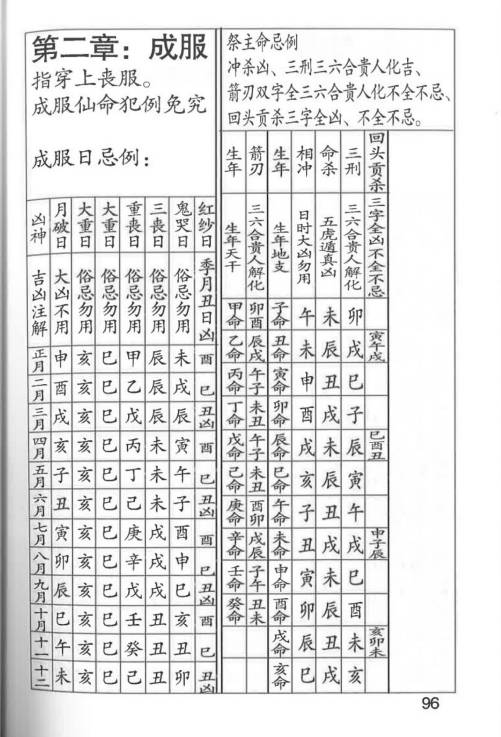 第二章：成服
指穿上丧服。
成服仙命犯例免究
成服日忌例：
凶神 月破日 大重日 大重日 重喪日 三喪日 鬼哭日 红纱日
吉凶注解 大凶不用 俗忌勿用 俗忌勿用 俗忌勿用 俗忌勿用 俗忌勿用 季月丑日凶
正月 申 亥 巳 甲 辰 未 酉
二月 酉 亥 巳 乙 辰 戌 巳
三月 戌 亥 巳 戊 辰 辰 丑凶
四月 亥 亥 巳 丙 未 寅 酉
五月 子 亥 巳 丁 未 午 巳
六月 丑 亥 巳 己 未 子 丑凶
七月 寅 亥 巳 庚 戌 酉 酉
八月 卯 亥 巳 辛 戌 申 巳
九月 辰 亥 巳 戊 戌 巳 丑凶
十月 巳 亥 巳 壬 丑 亥 酉
十一 午 亥 巳 癸 丑 丑 巳
十二 未 亥 巳 己 丑 卯 丑凶
祭主命忌例
冲杀凶、三刑三六合貴人化吉、
箭刃双字全三六合貴人化不全不忌、
回头贡杀三字全凶、不全不忌。
生年 箭刃 生年 相冲 命杀 三刑 回头贡杀
生年天干 三六合貴人解化 生年地支 日时大凶勿用 五虎遁真凶 三六合貴人解化 三字全凶不全不忌
甲命 卯酉 子命 午 未 卯
乙命 辰戌 丑命 未 辰 戌 寅午戌
丙命 午子 寅命 申 丑 巳
丁命 未丑 卯命 酉 戌 子
戊命 午子 辰命 戌 未 辰 巳酉丑
己命 未丑 巳命 亥 辰 寅
庚命 酉卯 午命 子 丑 午
辛命 戌辰 未命 丑 戌 戌 申子辰
壬命 子午 申命 寅 未 巳
癸命 丑未 酉命 卯 辰 酉
戌命 辰 丑 未 亥卯未
亥命 巳 戌 亥
96